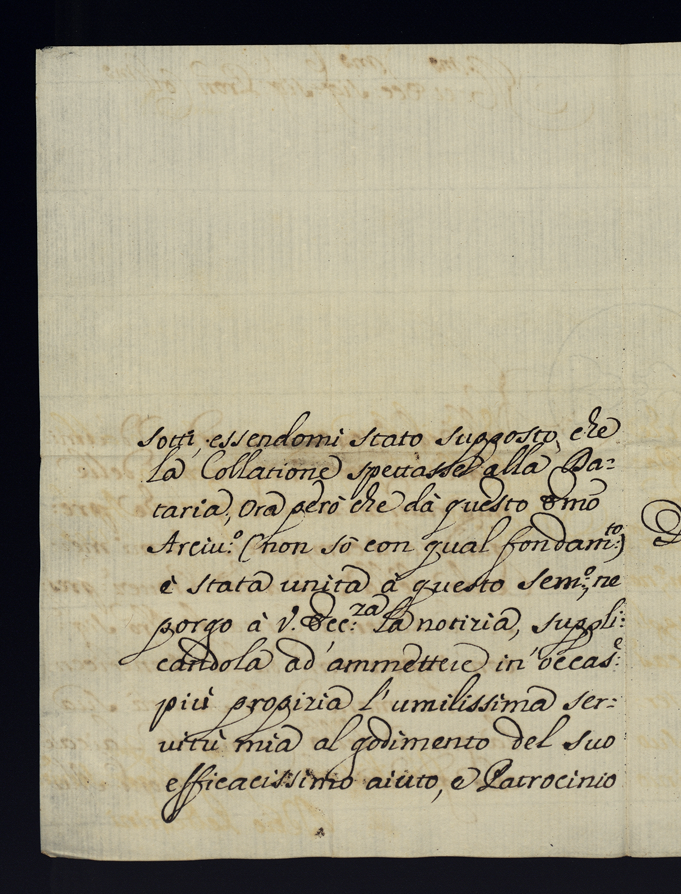 sotti, essendomi stato supposto, che
la Collatione spettasse alla Da-
taria; Ora però che dà questo Emo
Arciu.º (non sò con qual fondam.to)
è stata unita à questo Sem.º, ne
porgo à V. Ecc.za la notizia, suppli-
candola ad ammettere in occas.e
più propizia l'umilissima ser-
vitù mia al godimento del suo
efficacissimo aiuto, e Patrocinio